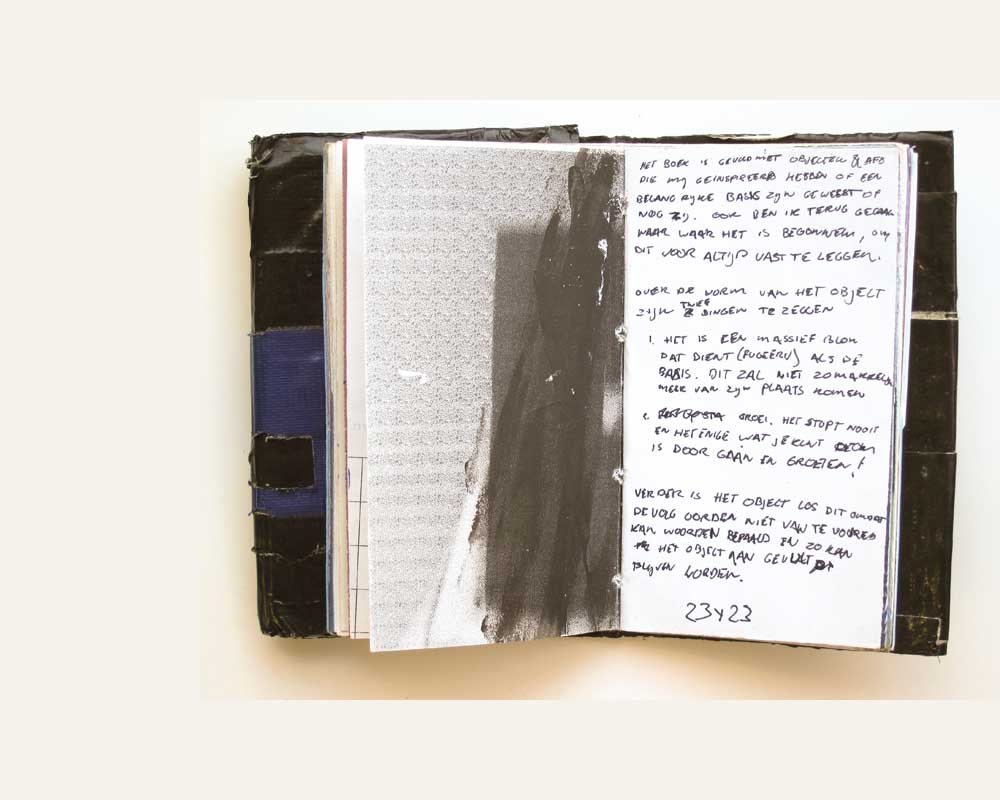 HET BOEK IS GEVULD MET OBJECTEN & AFB
DIE MIJ GEINSPIREERD HEBBEN OF EEN
BELANGRIJKE BASIS ZIJN GEWEEST OF
NOG ZIJ. OOK BEN IK TERUG GEGAAN
NAAR WAAR HET IS BEGONNEN, OM
DIT VOOR ALTIJD VAST TE LEGGEN.
OVER DE VORM VAN HET OBJECT
ZIJN TWEE DINGEN TE ZEGGEN
1. HET IS EEN MASSIEF BLOK
DAT DIENT (FUGEERD) ALS DE
BASIS. DIT ZAL NIET ZO MAKKELIJK
MEER VAN ZIJN PLAATS KOMEN
2. GROEI. HET STOPT NOOIT
EN HET ENIGE WAT JE KUNT
IS DOOR GAAN EN GROEIEN!
VERDER IS HET OBJECT LOS DIT OMDAT
DE VOLGOORDEN NIET VAN TE VOREN
KAN WOORDEN BEPAALD EN ZO KAN
HET OBJECT AAN GEVULT
BLIJVEN WORDEN.
23Y23